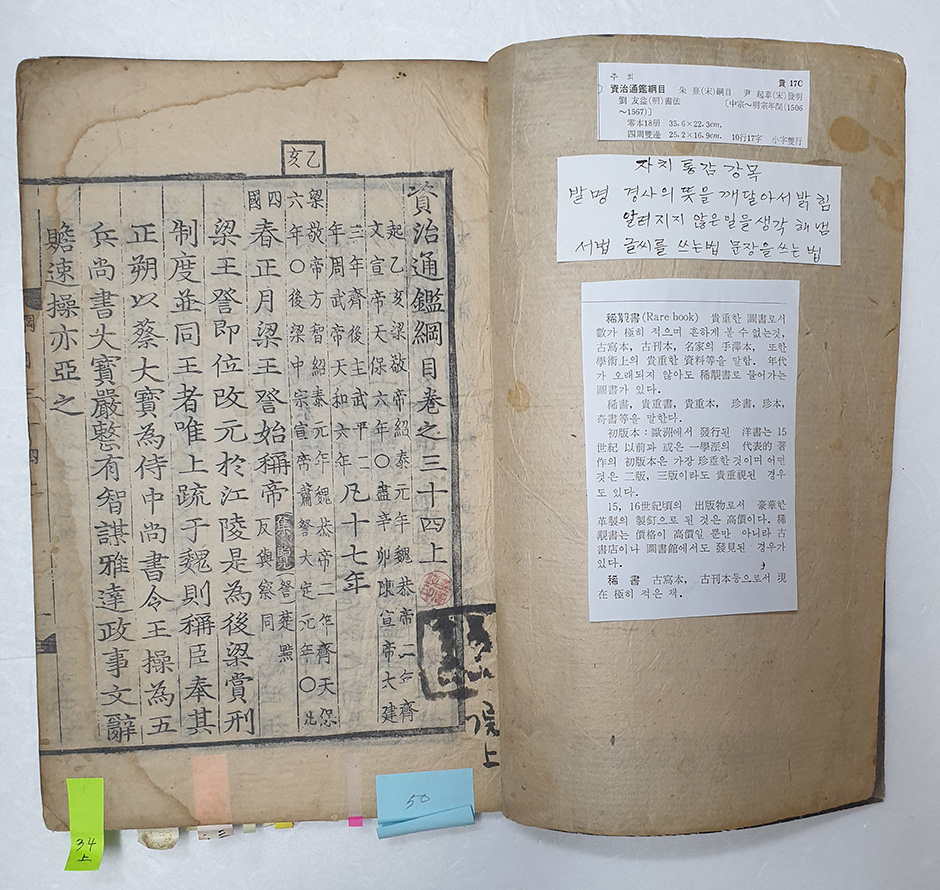 乙亥
資治通鑑綱目卷之三十四上
起乙亥梁敬帝紹泰元年魏恭帝二年齊
文宣帝天保六年〇盡辛卯陳宣帝太建
三年齊後主武平二
年周武帝天和六年
凡十七年
梁敬帝方智紹泰元年魏恭帝二年齊天保
六年〇後梁中宗宣帝蕭詧大定元年〇凡
四
國
春正月梁王詧始稱帝 集覽 詧楚黠
反與察同
梁王詧即位改元於江陵是為後梁賞刑
制度並同王者唯上疏于魏則稱臣奉其
正朔以蔡大寶為侍中尚書令王操為五
兵尚書大寶嚴整有智謀雅達政事文辭
贍速操亦亞之
上
34
上
50
주 희 貴 17C
資治通鑑綱目 朱 熹(宋)綱目 尹 起莘(宋)發明
劉 友益(明)書法 〔中宗~明宗年間(1506
~1567)〕
零本18册 35.6×22.3cm.
四周雙邊 25.2×16.9cm. 10行17字 小字雙行
자치통감강목
발명 경사의 뜻을 깨달아서 밝힘
알려지지 않은 일을 생각해 냄
서법 글씨를 쓰는 법 문장을 쓰는 법
稀覯書(Rare book) 貴重한 圖書로서
數가 極히 적으며 흔하게 볼 수 없는것,
古寫本, 古刊本, 名家의 手澤本, 또한
學術上의 貴重한 資料等을 말함. 年代
가 오래되지 않아도 稀覯書로 들어가는
圖書가 있다.
稀書, 貴重書, 貴重本, 珍書, 珍本,
奇書等을 말한다.
初版本：歐洲에서 發行된 洋書는 15
世紀 以前과 或은 一學派의 代表的 著
作의 初版本은 가장 珍重한것이며 어떤
것은 二版, 三版이라도 貴重視된 경우
도 있다.
15, 16世紀頃의 出版物로서 豪華한
革製의 製釘으로 된 것은 高價이다. 稀
覯書는 價格이 高價일 뿐만 아니라 古
書店이나 圖書館에서도 發見된 경우가
있다.
稀 書 古寫本, 古刊本등으로서 現
在 極히 적은 책.